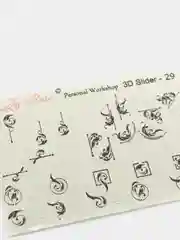 © Personal Workshop 3D Slider - 29